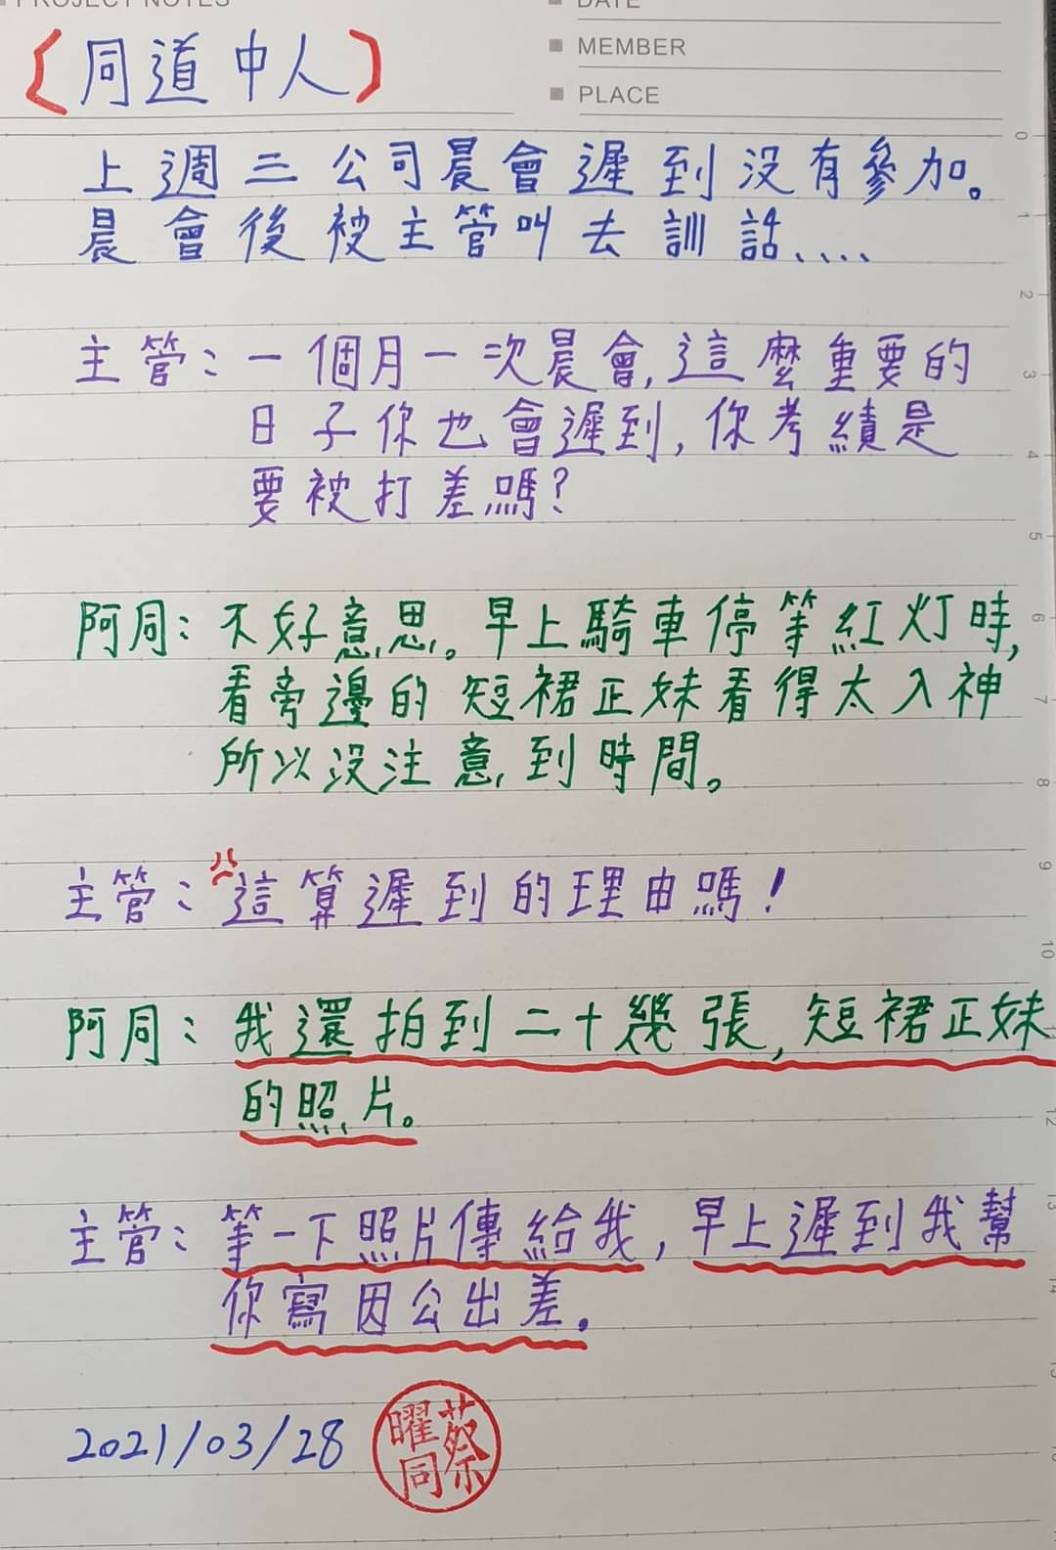 PROJECT NOTES
DATE
MEMBER
PLACE
〔同道中人〕
上週三公司晨會遲到沒有參加。
晨會後被主管叫去訓話....
主管：一個月一次晨會,這麼重要的
日子你也會遲到,你考績是
要被打差嗎?
阿同：不好意思。早上騎車停等紅灯時,
看旁邊的短裙正妹看得太入神
所以沒注意到時間。
主管：這算遲到的理由嗎!
阿同：我還拍到二十幾張,短裙正妹
的照片。
主管：等一下照片傳給我,早上遲到我幫
你寫因公出差。
2021/03/28
蔡曜同
0
1
2
3
4
5
6
7
8
9
10
12
13
14